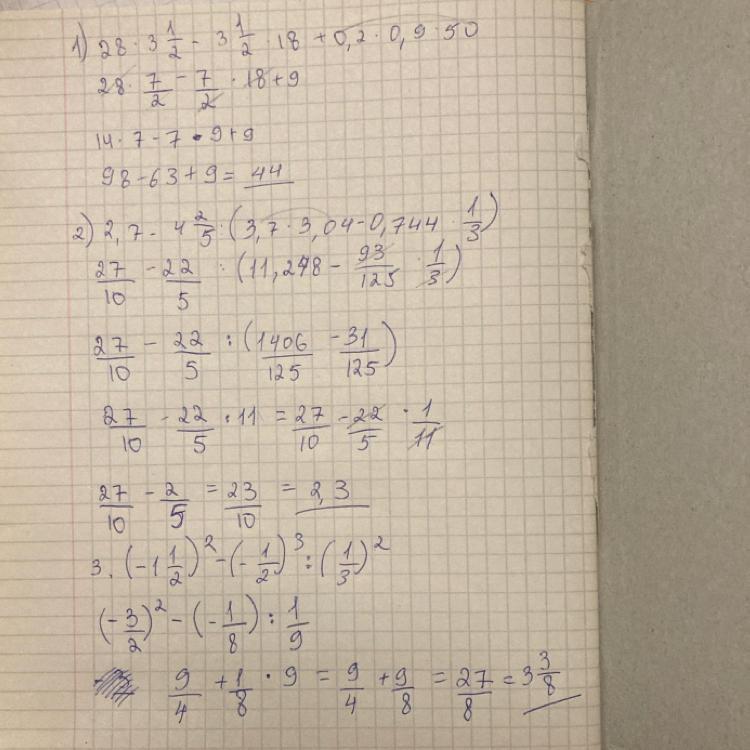 1) 28 · 3 1/2 - 3 1/2 · 18 + 0,2 · 0,9 · 50
28 · 7/2 - 7/2 · 18 + 9
14 · 7 - 7 · 9 + 9
98 - 63 + 9 = 44
2) 2,7 - 4 2/5 : (3,7 · 3,04 - 0,744 · 1/3)
27/10 - 22/5 : (11,248 - 93/125 · 1/3)
27/10 - 22/5 : (1406/125 - 31/125)
27/10 - 22/5 : 11 = 27/10 - 22/5 · 1/11
27/10 - 2/5 = 23/10 = 2,3
3. (-1 1/2)² - (-1/2)³ : (1/3)²
(-3/2)² - (-1/8) : 1/9
9/4 + 1/8 · 9 = 9/4 + 9/8 = 27/8 = 3 3/8